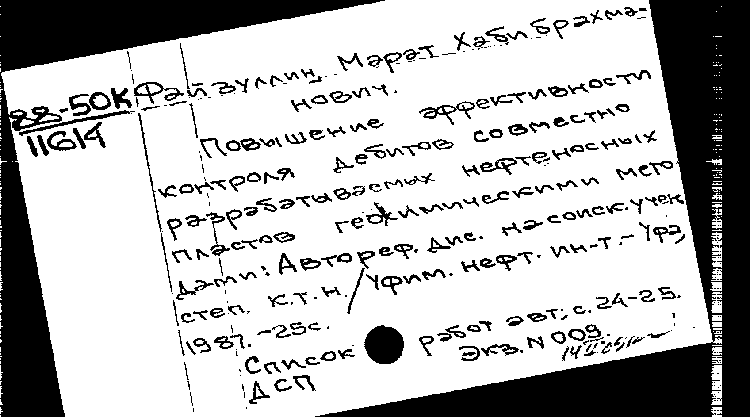 88-50К
11614
Файзуллин, Марат Хабибрахма-
нович.
Повышение эффективности
контроля дебитов совместно
разрабатываемых нефтеносных
пластов геохимическими мето-
дами: Автореф. дис. на соиск. учен
степ. к.т.н. / Уфим. нефт. ин-т. - Уфа,
1987. - 25с.
Список работ авт.: с. 24-25.
ДСП Экз. N 009.